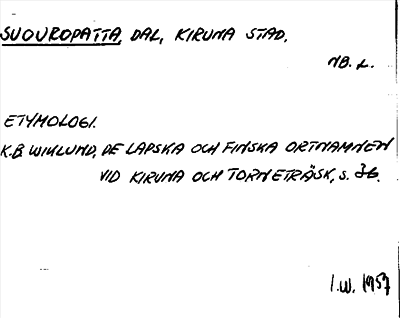 SUOUROPATTA, DAL, KIRUNA STAD.
NB. L.
ETYMOLOGI.
K.B. WIKLUND, DE LAPSKA OCH FINSKA ORTNAMNEN
VID KIRUNA OCH TORNETRÄSK, S. 36.
I.W. 1957